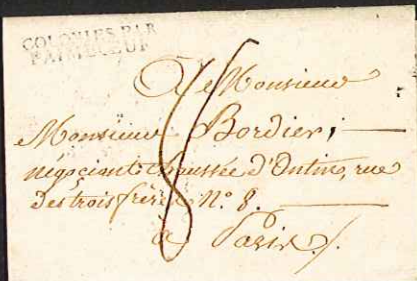 COLONIES PAR
PAIMBŒUF
A Monsieur
Monsieur Bordier,
négociant chaussée d'Antin, rue
Des trois frères N.º 8.
à Paris
8